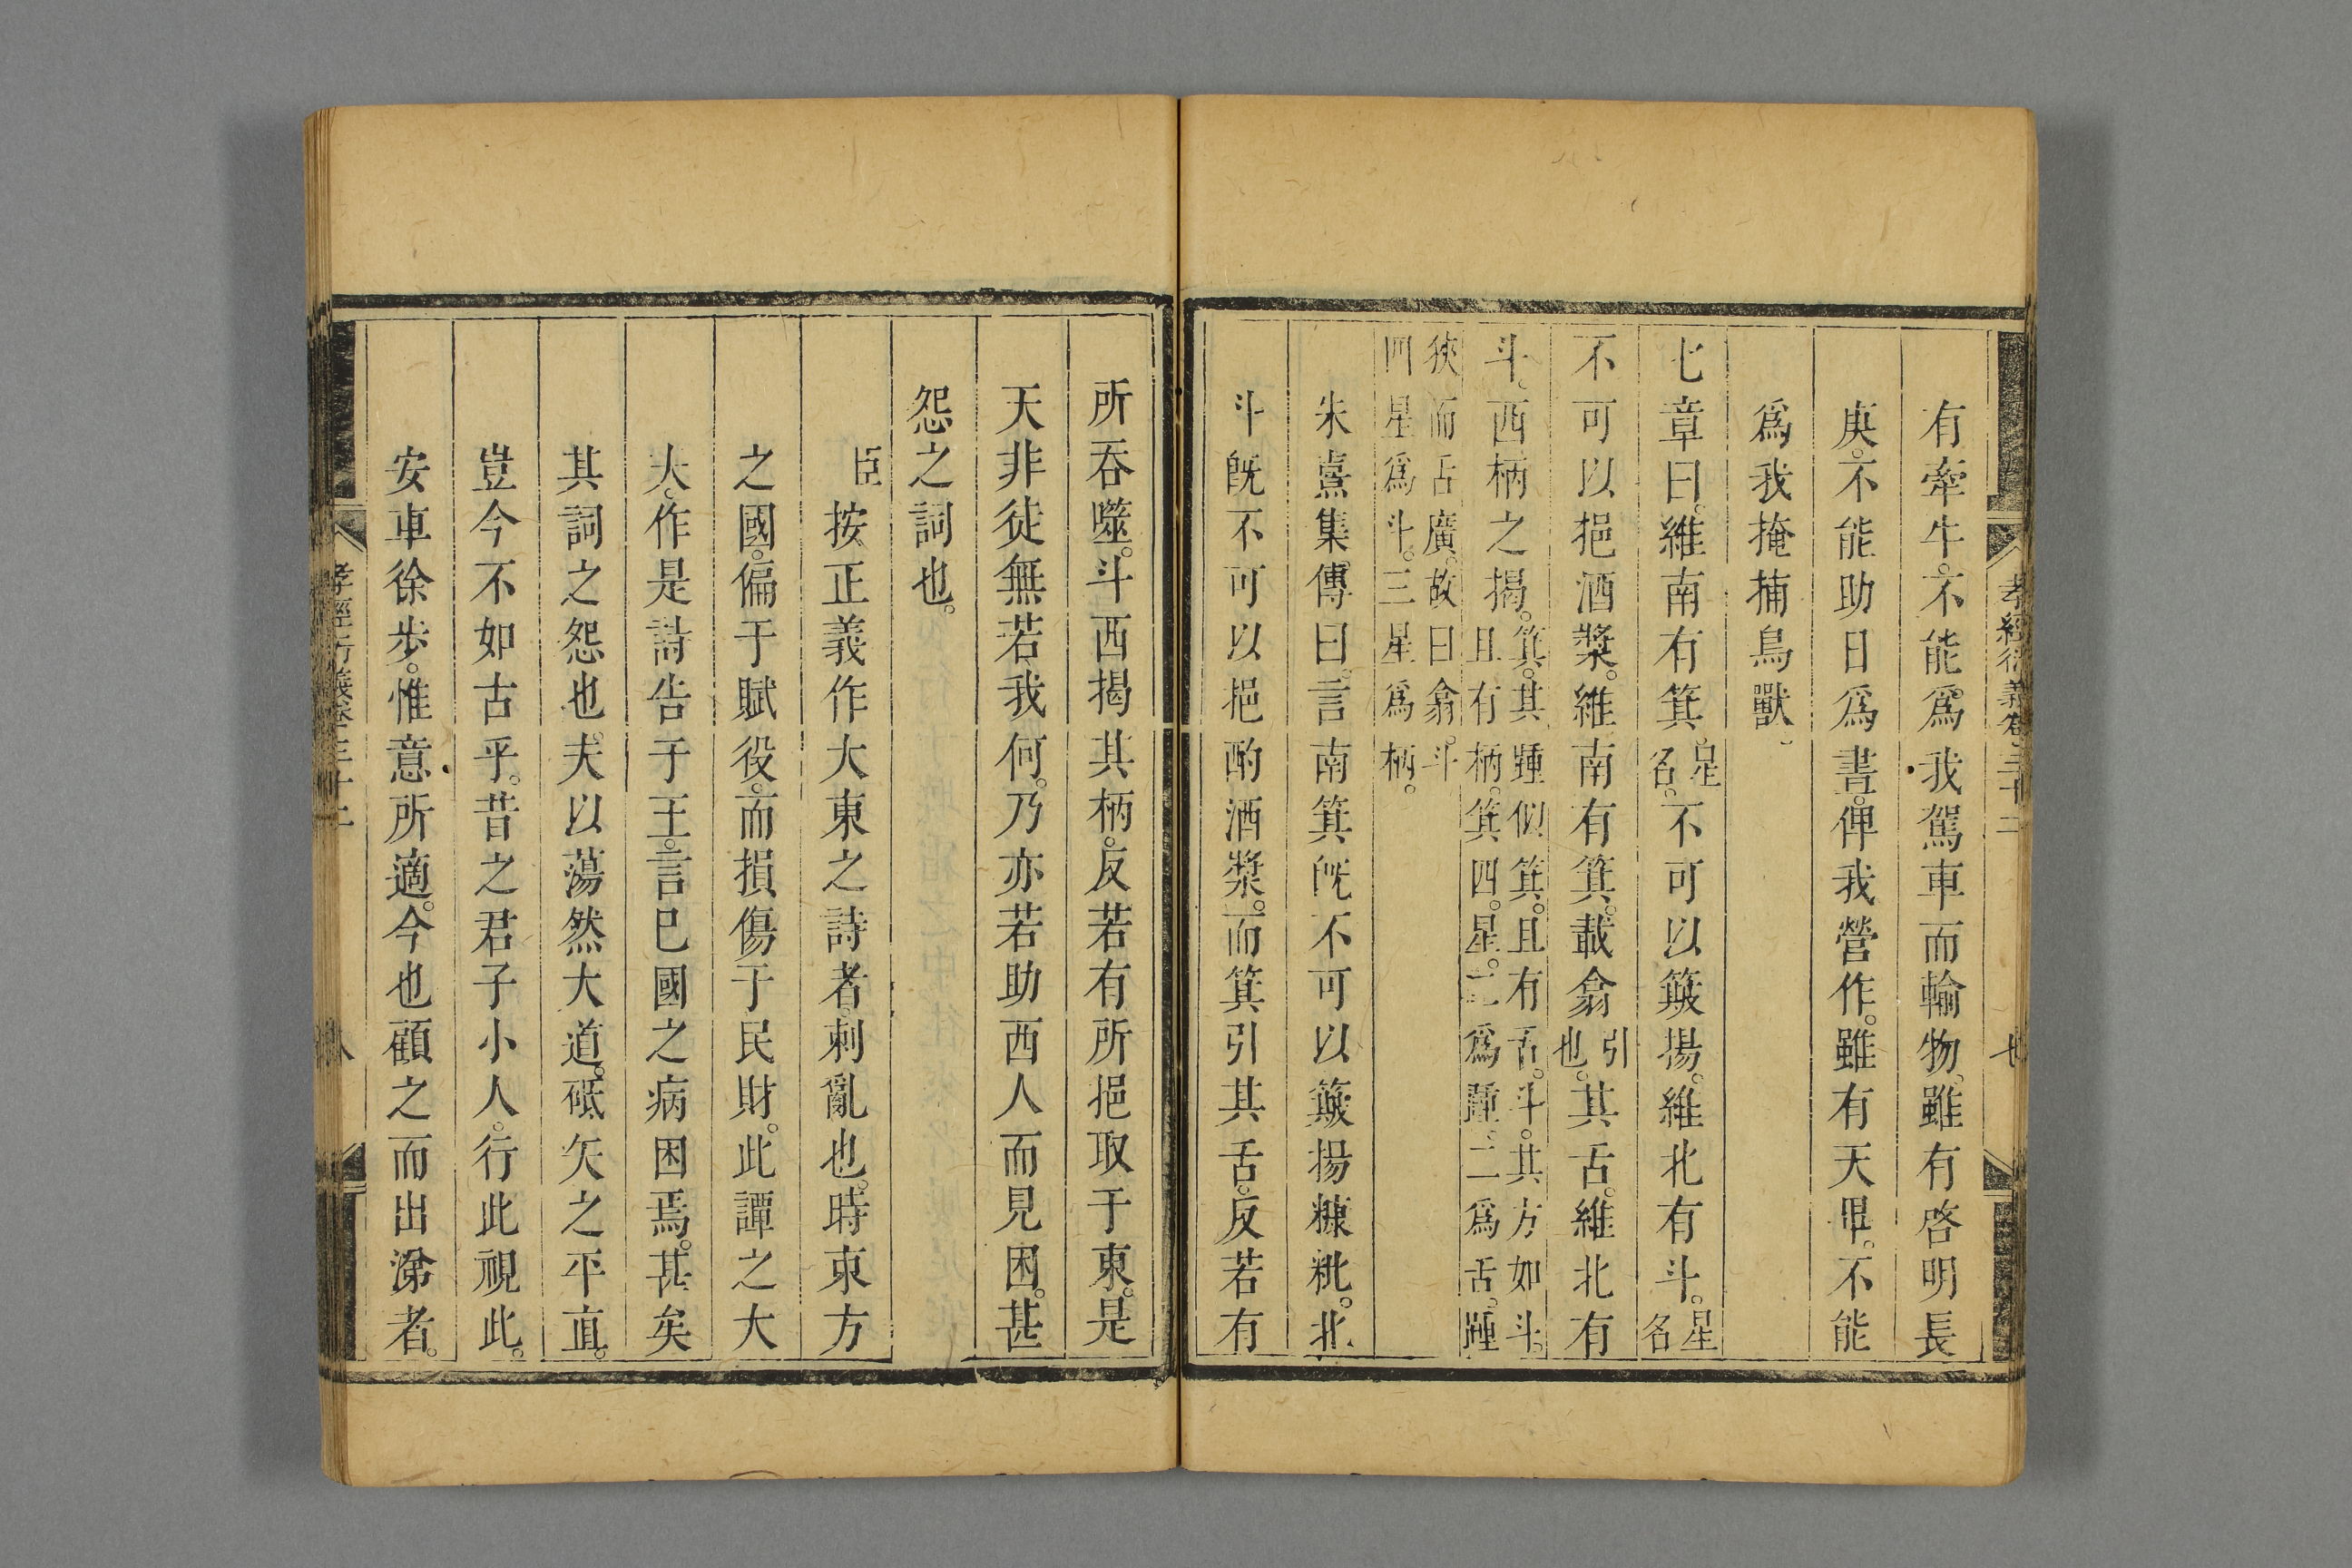 孝經衍義卷三十二
七
有牽牛。不能爲我駕車而輸物。雖有啓明長
庚。不能助日爲晝。俾我營作。雖有天畢。不能
爲我掩捕鳥獸。
七章曰。維南有箕。星名。不可以簸揚。維北有斗。星名
不可以挹酒漿。維南有箕。載翕引也。其舌。維北有
斗。西柄之揭。箕。其踵似箕。且有舌。斗。其方如斗。且有柄。箕四星。二爲踵。二爲舌。踵
狹而舌廣。故曰翕。斗四星爲斗。三星爲柄。
朱熹集傳曰。言南箕旣不可以簸揚糠秕。北
斗旣不可以挹酌酒漿。而箕引其舌。反若有
所吞噬。斗西揭其柄。反若有所挹取于東。是
天非徒無若我何。乃亦若助西人而見困。甚
怨之詞也。
臣按正義作大東之詩者。刺亂也。時東方
之國。偏于賦役。而損傷于民財。此譚之大
夫。作是詩告于王。言巳國之病困焉。甚矣
其詞之怨也。夫以蕩然大道。砥矢之平直。
豈今不如古乎。昔之君子小人。行此視此。
安車徐步。惟意所適。今也顧之而出涕者。
孝經衍義卷三十二
八